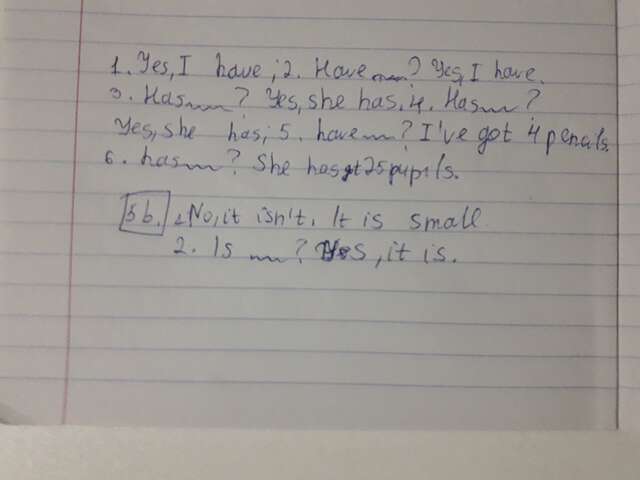 1. Yes, I have; 2. Have ~~~? Yes, I have.
3. Has ~~~? Yes, she has, 4. Has ~~~?
Yes, she has; 5. have ~~~? I've got 4 pencils.
6. has ~~~? She has got 25 pupils.
5b. 1. No, it isn't. It is small
2. Is ~~~? Yes, it is.